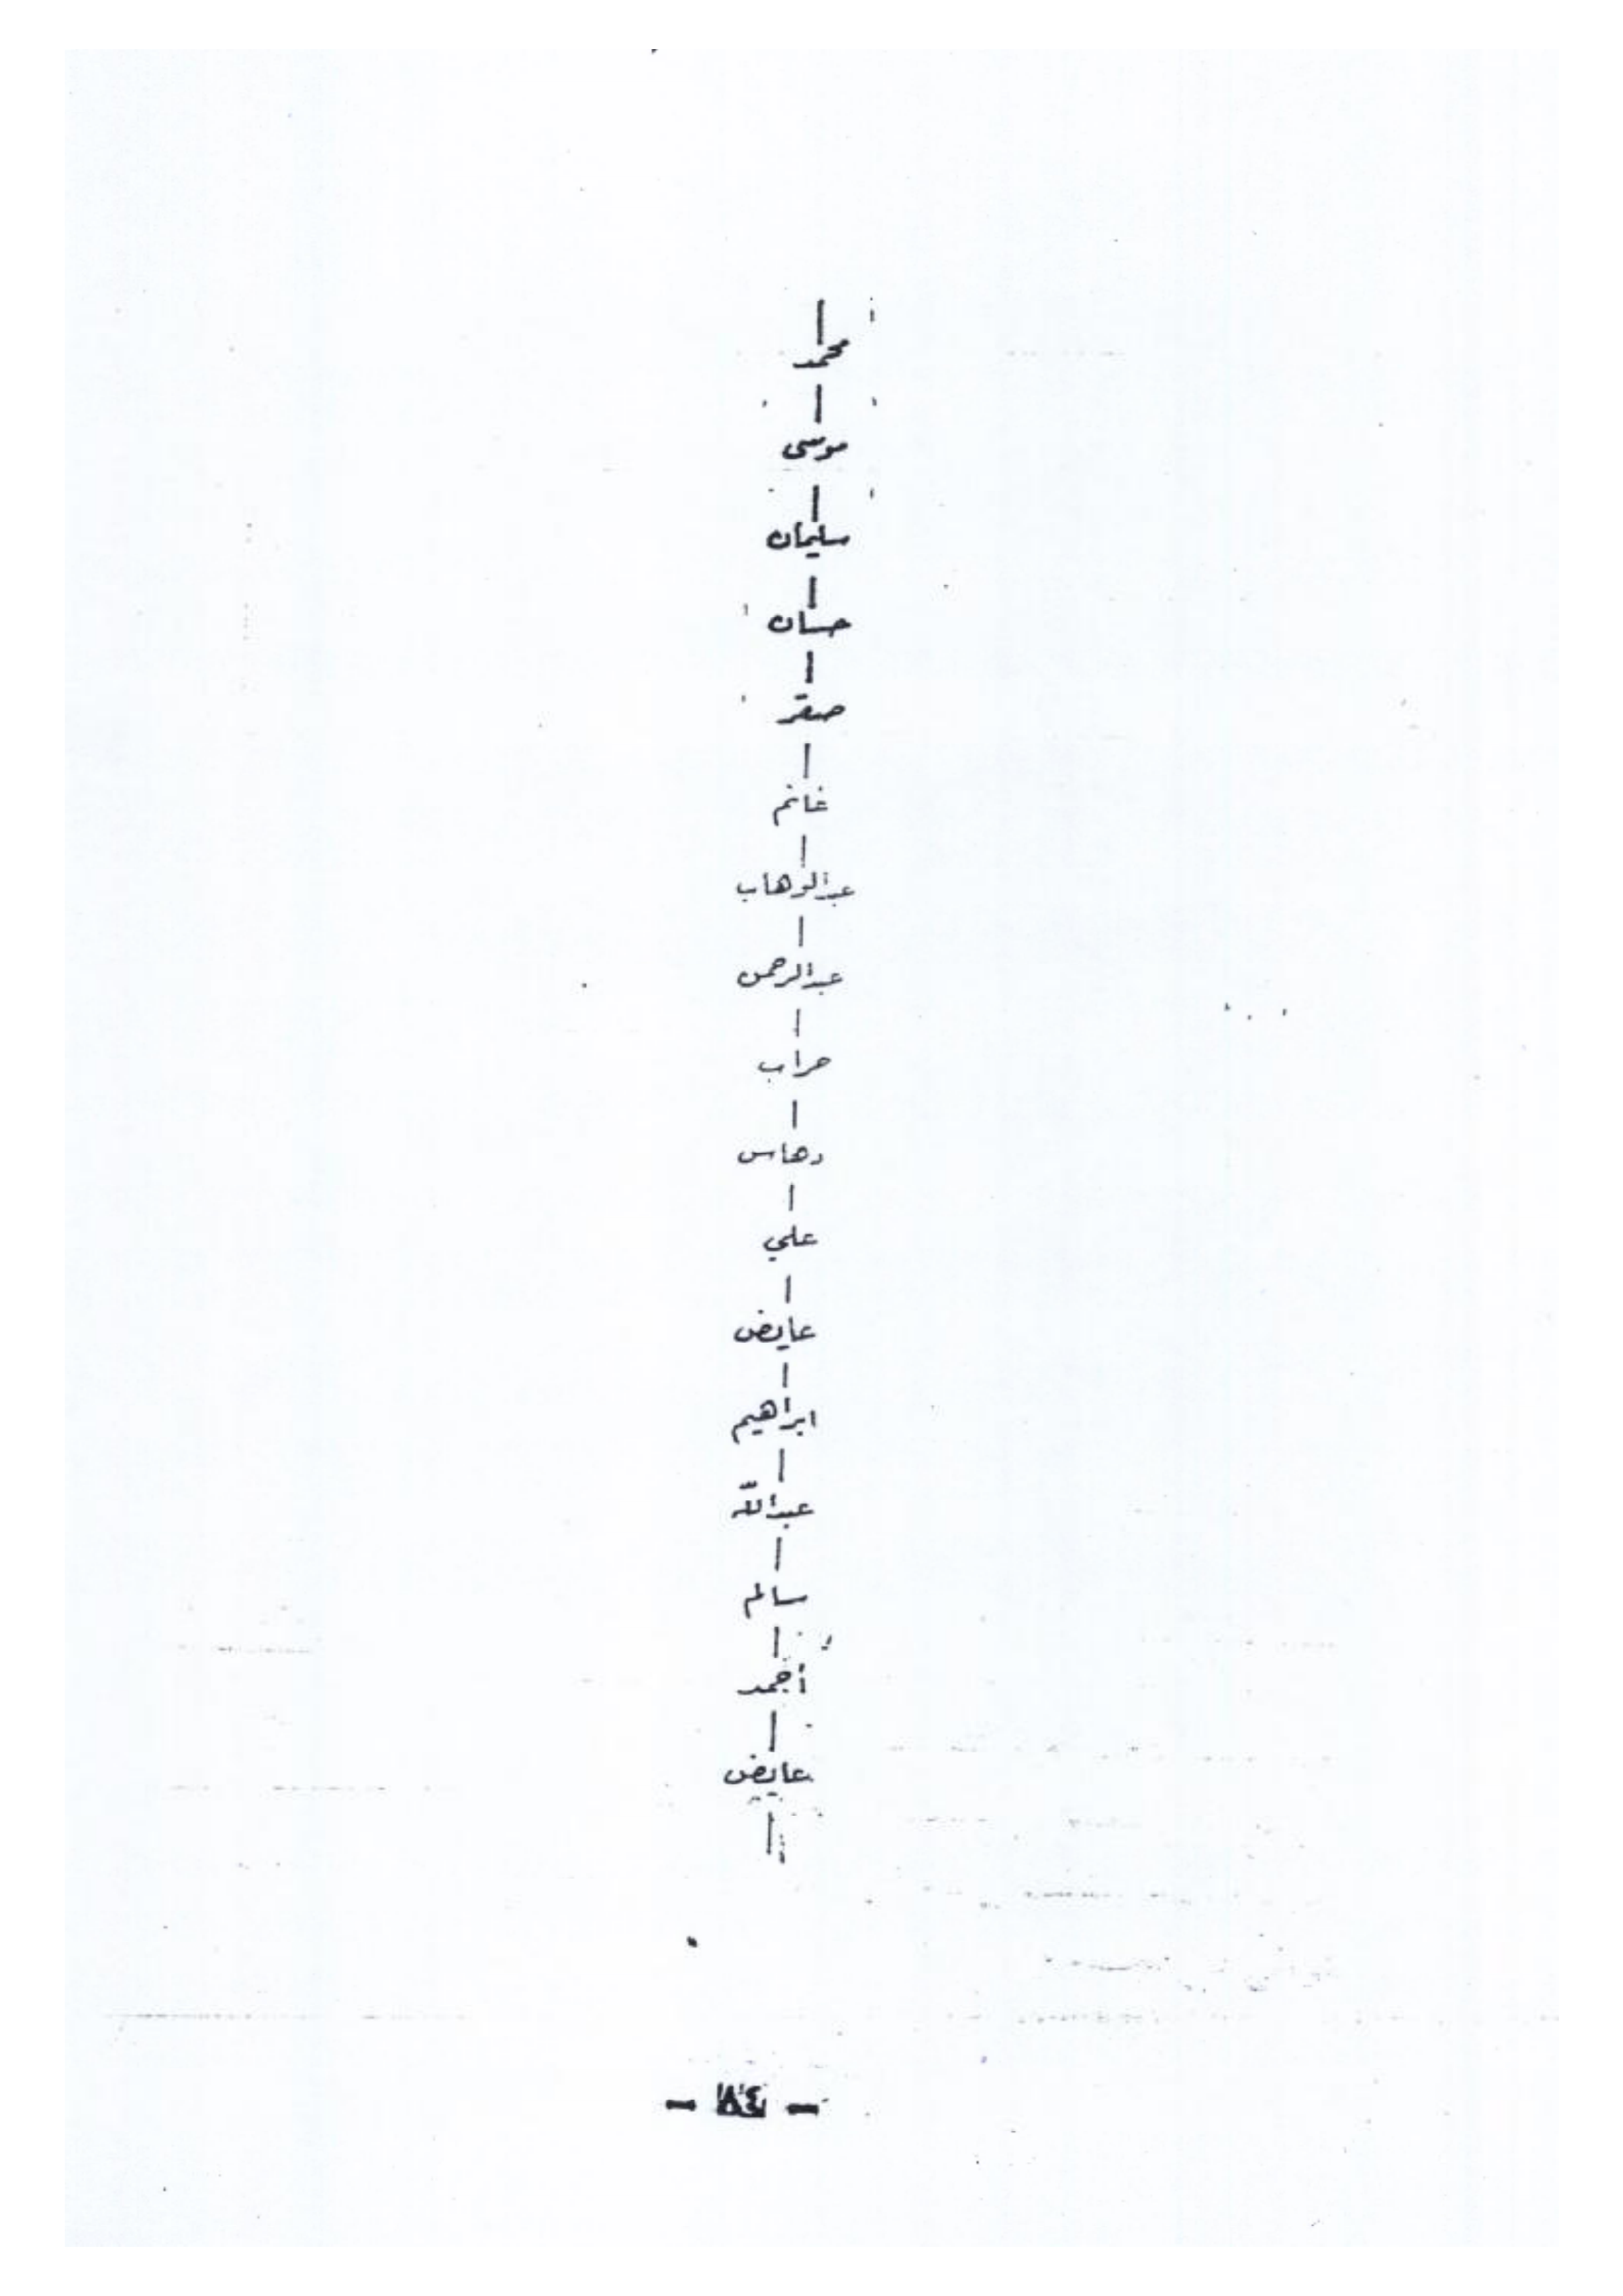 محمد
موسى
سليمان
حسان
صقر
غانم
عبدالوهاب
عبدالرحمن
حراب
دهاس
علي
عايض
ابراهيم
عبدالله
سالم
أحمد
عايض
- ٨٤ -